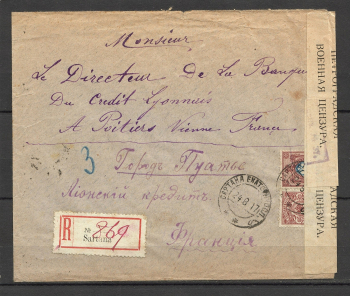 Monsieur
Le Directeur De La Banque
Du Credit Lyonnais
A Poitiers Vienne France
3
Городъ Пуатье
Лионский кредитъ
Франция
R
№ 269
Sartana
САРТАНА ЕКАТ
ВОЕННАЯ ЦЕНЗУРА.
ЦЕНЗУРА.